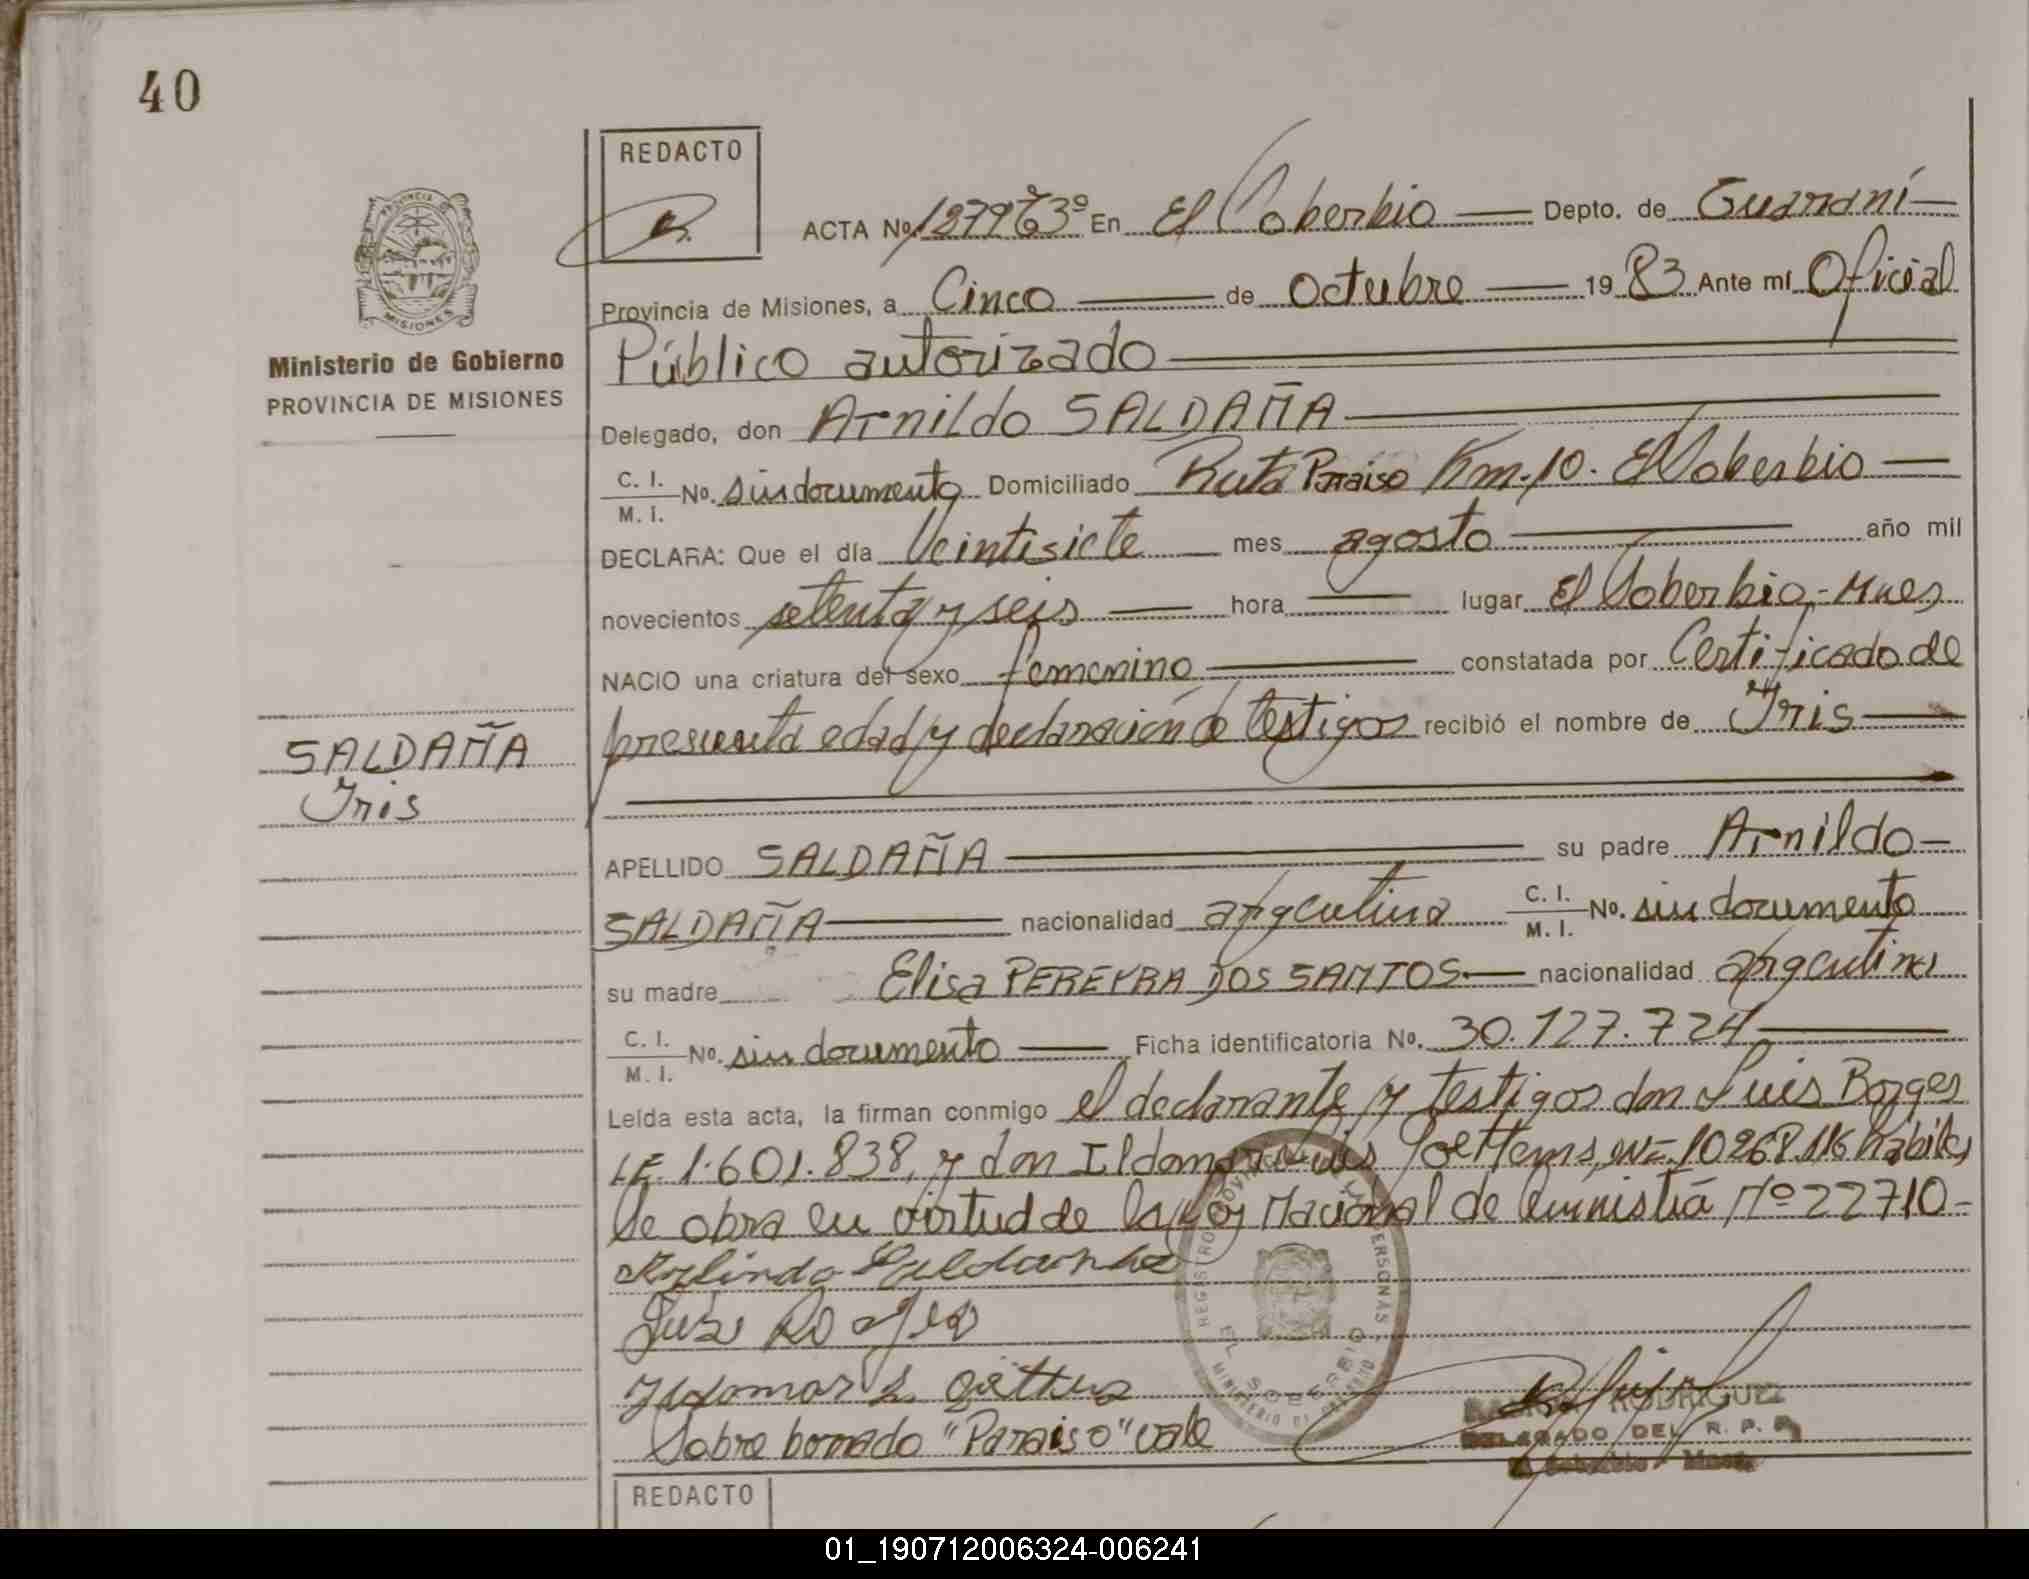 40
REDACTO
ACTA No. En El Soberbio Depto. de Guaraní
Provincia de Misiones, a Cinco de Octubre 19 83 Ante mí Oficial
Público autorizado
PROVINCIA DE
MISIONES
Ministerio de Gobierno
PROVINCIA DE MISIONES
Delegado, don Arnildo SALDAÑA
C. I.
M. I. No. sin documento Domiciliado Ruta Paraiso Km.10. El Soberbio
DECLARA: Que el día Veintisiete mes agosto año mil
novecientos setenta y seis hora lugar El Soberbio,-Mnes
NACIO una criatura del sexo femenino constatada por Certificado de
presunta edad y declaración de testigos recibió el nombre de Iris
SALDAÑA
Iris
APELLIDO SALDAÑA su padre Arnildo
SALDAÑA nacionalidad argentina C. I.
M. I. No. sin documento
su madre Elisa PEREYRA DOS SANTOS nacionalidad argentina
C. I.
M. I. No. sin documento Ficha identificatoria No. 30.127.724
Leída esta acta, la firman conmigo el declarante y testigos don Luis Borges
LE. 1.601.838, y don Ildomar Luis 10268.116 hábiles
Se obra en virtud de la Ley Nacional de Amnistiá Nº 22710-
Saldanha
Ildomar L.
Sobre borrado "Paraiso" vale
EL SOBERBIO
MINISTERIO DE GOBIERNO
RODRIGUEZ
DELEGADO DEL R. P. P.
El Soberbio Mnes.
REDACTO
01_190712006324-006241